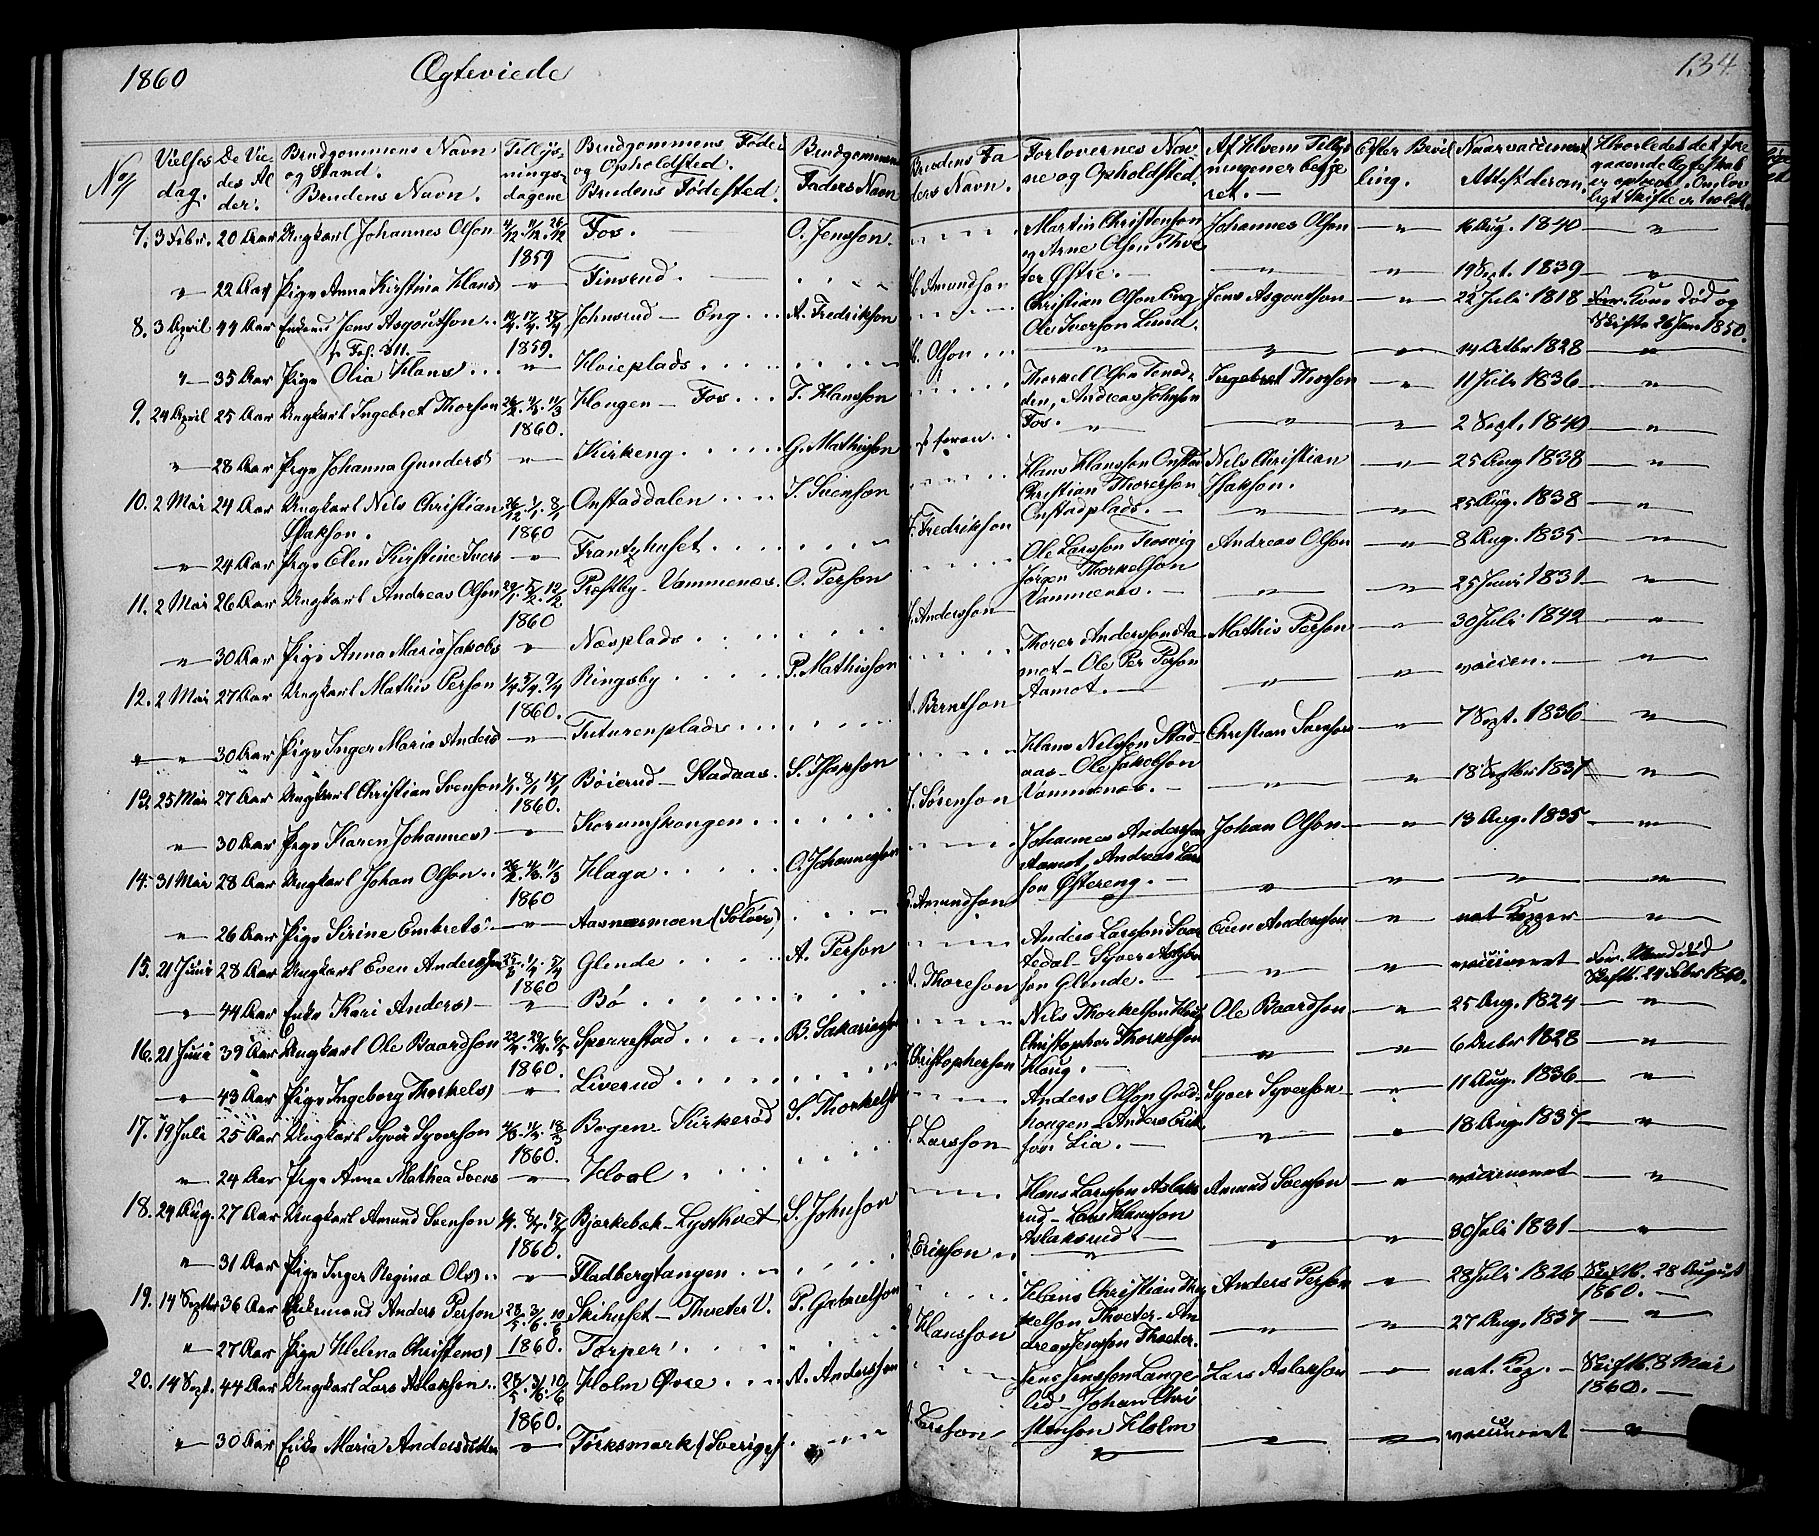 1860 Ægteviede 134.
No/ Vielses dag. De Vie- des Al der. Brudgommens Navn og Stand. Brudens Navn. Tillys- nings- dagene Brudgommens Føde- og Opholdsted. Brudens Fødested. Brudgommens Faders Navn Brudens Fa ders Navn. Forlovernes Nav ne og Opholdsted. Af Hvem Tillys ningen er begje ret. Efter Bevil ling. Naar vaccineret Attest derom.
7. 3 Febr. 20 Aar Ungkarl Johannes Olson 4/12. 11/12. 26/12 1859 Fos. O. Jensson. Martin Christenson og Arne Olsen Thve ter Østre. Johannes Olson 16 Aug. 1840
22 Aar Pige Anna Kirstina Hans Finsrud. Amundson 19 Sept. 1839
8. 3 April 44 Aar Enkemd Jens Asgoutson 1859. Johnsrud - Eng A. Fredrikson Christian Olson Eng Ole Iverson Lund. Jens Asgoutson 22 Juli 1818 Forr. Kone død og Skifte 26 Jan 1850.
35 Aar Pige Olia Hans Hvieplads Olson 14 Octbr 1828
9. 24 April 25 Aar Ungkarl Ingebret Thorson 1860. Haugen - Fos T. Hansson Thorkel Olsen Andreas Johnson Fos. Ingebret Thorson 11 Juli 1836
28 Aar Pige Johanna Gunders Kirkeng G. Mathisson 2 Sept. 1840
10. 2 Mai 24 Aar Ungkarl Nils Christian Isakson. 26/12. 1/1. 8/1 1860 Onstaddalen I. Svenson Hans Hansson Onstad Christian Thorerson Onstadplads. Nils Christian Isakson. 25 Aug 1838
24 Aar Pige Elen Kirstine Ivers Frantzhuset Fredrikson 25 Aug. 1838
11. 2 Mai 26 Aar Ungkarl Andreas Olson 29/1. 5/2. 12/2 1860 Præstby - Vammenæs. O. Person Ole Larsson Jørgen Thorkelson Vammenæs. Andreas Olson 8 Aug. 1835
30 Aar Pige Anna Maria Jakobs Næsplads Andersson 25 Juni 1831
12. 2 Mai 27 Aar Ungkarl Mathis Person 1860. Ringsby P. Mathisson Thorer Andersson Aa mot - Ole Per Person Aamot. Mathis Person 30 Juli 1842
30 Aar Pige Inger Maria Anders Tuturenplads Berntson vaccien.
13. 25 Mai 27 Aar Ungkarl Christian Svenson 1/1. 8/1. 15/1 1860. Böierud - Stadaas. S. Isakson Hans Nilsson Stad- aas - Ole Jakobson Vammenæs. Christian Svenson 7 Sept. 1836
30 Aar Pige Karen Johannes Korumskongen Sørenson 18 Septbr 1837
14. 31 Mai 28 Aar Ungkarl Johan Olson 26/2. 4/3. 11/3 1860 Haga O. Johannesson Johannes Andersson Aamot, Andreas Lars son Østereng. Johan Olson 13 Aug. 1835
26 Aar Pige Sirine Embrets Aasnæsmoen (Solør) Amundson
15. 21 Juni 28 Aar Ungkarl Even Anderson 1860 Glende A. Person Anders Larsson Svar tedal - Syver Asbjørn son Glende. Even Andersson nat. Kopper
44 Aar Enke Kari Anders Bø Thoreson vaccineret Forr. Mand død Skifte. 24 Febr. 1860.
16. 21 Juni 39 Aar Ungkarl Ole Baardson 22/4. 29/4. 6/5 1860. Sporrestad B. Sakariasson Nils Thorkelson Haug Christopher Thorkelson Haug. Ole Baardson 25 Aug. 1824
43 Aar Pige Ingeborg Thorkels Liverud Christopherson 6 Decbr 1828
17. 19 Juli 25 Aar Ungkarl Syver Syverson 1860. Bogen - Kirkerød S. Thorkelson Anders Olson Guld- haugen - Anders Erik son Lia. Syver Syverson 11 Aug. 1836
24 Aar Pige Anna Mathea Svens Hval Larsson 18 Aug. 1837
18. 24 Aug. 27 Aar Ungkarl Amund Svenson 1/7. 8/7. 15/7 1860. Bjørkebæk - Lysthuet S. Johnson Hans Larsson Aslaks rud - Lars Hansson Aslaksrud. Amund Svenson vaccineret
31 Aar Pige Inger Regina Ols Fladbergtangen Erikson 30 Juli 1831
19. 14 Septbr 36 Aar Enkemand Anders Person 28/5. 3/6. 10/6 1860. Skihuset - Thveter V. P. Gabrielson Hans Christian Thor kelson Thveter - An dreas Jensson Thveter. Anders Person 28 Juli 1826 Skifte. 28 August 1860.
27 Aar Pige Helena Christens Torper Hansson 27 Aug. 1837
20. 14 Sept. 44 Aar Ungkarl Lars Aslakson 28/5. 3/6. 10/6 1860. Holm Øvre A. Andersson Jens Jensson Lange lid - Johan Chri stenson Holm Lars Aslakson nat. Kop. Skifte. 8 Mai 1860.
30 Aar Enke Maria Andersdatter Torksmark (Sverige) Larsson vaccineret